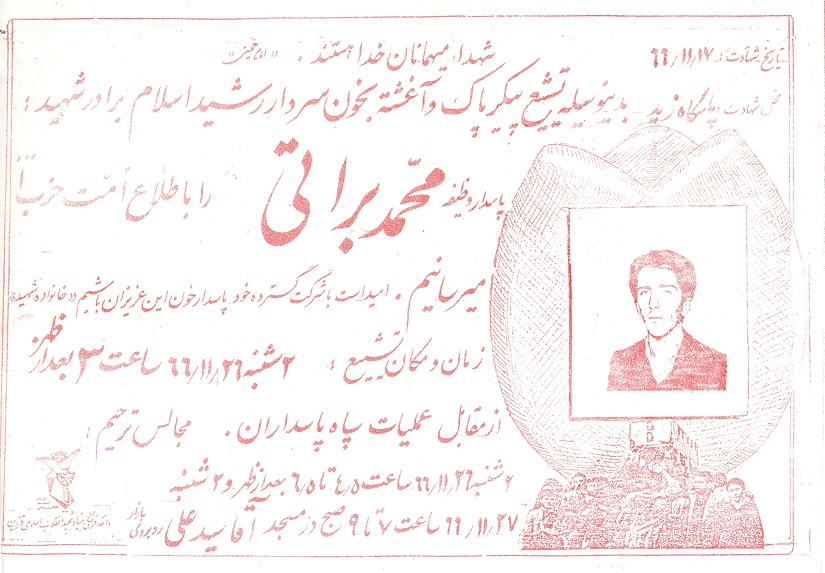 شهداء میهمانان خدا هستند. «امام خمینی»
تاریخ شهادت: ۶۶/۱۱/۱۷
محل شهادت: پاسگاه زید - بدینوسیله تشیع پیکر پاک و آغشته بخون سردار رشید اسلام برادر شهید:
پاسدار وظیفه محمّد براتی را باطلاع اُمّت حزب ا...
میرسانیم. امید است با شرکت گسترده خود پاسدار خون این عزیزان باشیم «خانواده شهید»
زمان و مکان تشیع: ۲شنبه ۶۶/۱۱/۲۶ ساعت ۳ بعد از ظهر
از مقابل عملیات سپاه پاسداران. مجالس ترحیم:
۲ شنبه ۶۶/۱۱/۲۶ ساعت ۴٫۵ تا ۶٫۵ بعد از ظهر و ۲ شنبه
۶۶/۱۱/۲۷ ساعت ۷ تا ۹ صبح در مسجد آقا سید علی روبروی بازار
انقلاب اسلامی قزوین